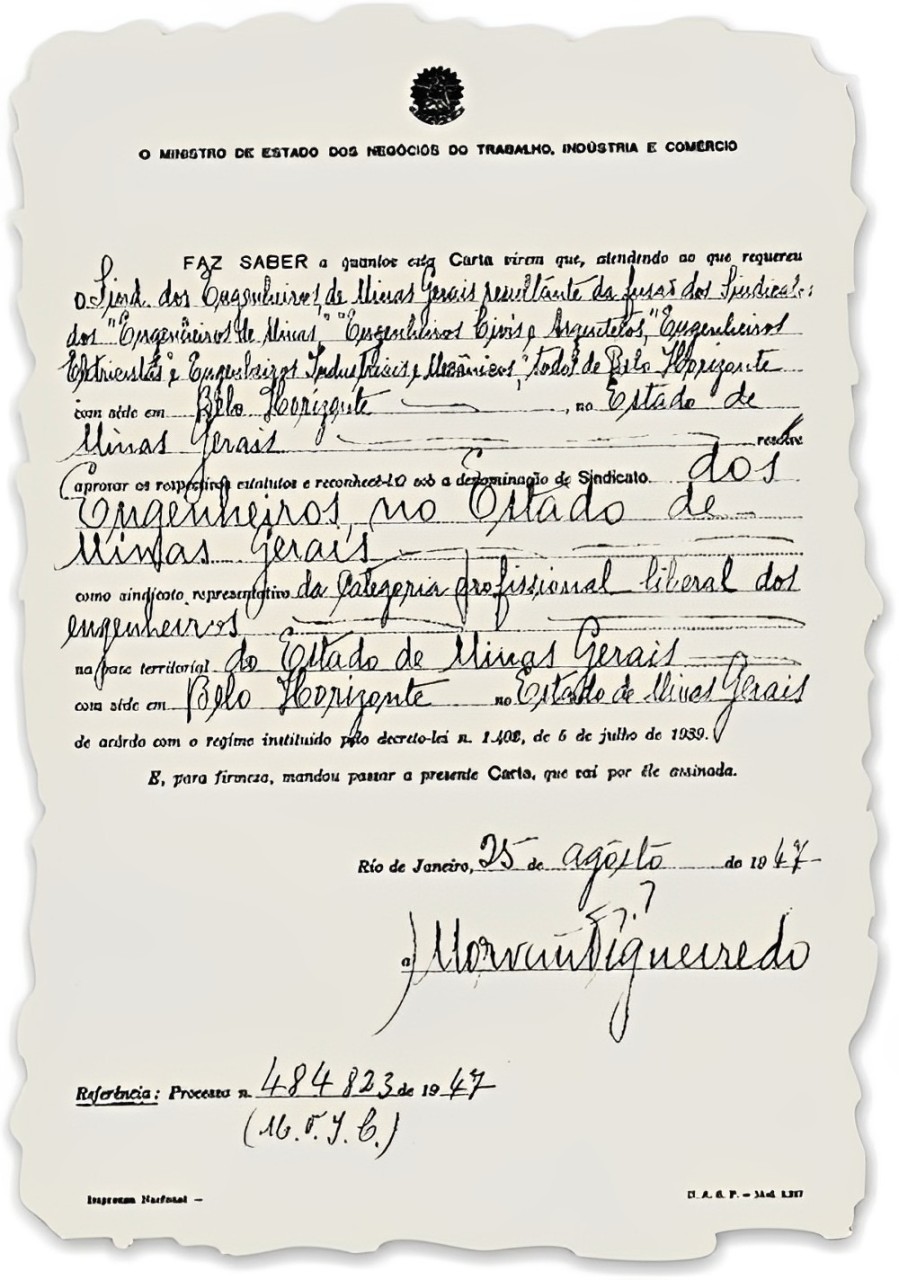 O MINISTRO DE ESTADO DOS NEGÓCIOS DO TRABALHO, INDÚSTRIA E COMÉRCIO
FAZ SABER a quantos esta Carta virem que, atendendo ao que requereu
o Sind. dos Engenheiros de Minas Gerais resultante da fusão dos Sindicatos
dos "Engenheiros de Minas," "Engenheiros Civis e Arquitetos," "Engenheiros
Eletricistas e Engenheiros Industriais e Mecânicos," todos de Belo Horizonte
com séde em Belo Horizonte, no Estado de
Minas Gerais resolve
aprovar os respectivos estatutos e reconhecê-lo sob a denominação de Sindicato dos
Engenheiros, no Estado de
Minas Gerais
como sindicato representativo da categoria profissional liberal dos
engenheiros
na base territorial do Estado de Minas Gerais
com séde em Belo Horizonte no Estado de Minas Gerais
de acôrdo com o regime instituído pelo decreto-lei n. 1.402, de 5 de julho de 1939.
E, para firmeza, mandou passar a presente Carta, que vai por êle assinada.
Rio de Janeiro, 25 de agôsto de 1947
a) Morvan Figueiredo
Referência: Processo n. 484823 de 1947
(M.T.I.C.)
Imprensa Nacional –